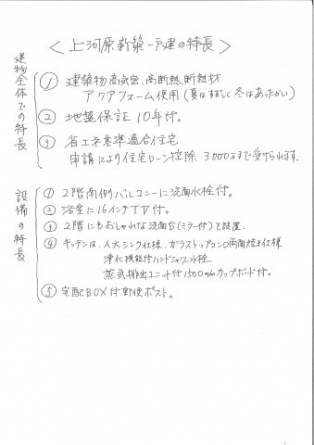 <上河原新築一戸建の特長>
建物全体での特長
① 建築物高気密、高断熱、断熱材
アクアフォーム使用(夏はすずしく冬はあったかい)
② 地盤保証10年付。
③ 省エネ基準適合住宅
申請により住宅ローン控除 3000万まで受けられます。
設備の特長
① 2階南側バルコニーに洗面水栓付。
② 浴室に16インチTV付。
③ 2階にもおしゃれな洗面台(ミラー付)を設置。
④ キッチンは、人大シンク仕様、ガラストップコンロ両面焼き仕様
浄水機能付ハンドシャワー水栓
蒸気排出ユニット付1500mmカップボード付。
⑤ 宅配BOX付郵便ポスト。